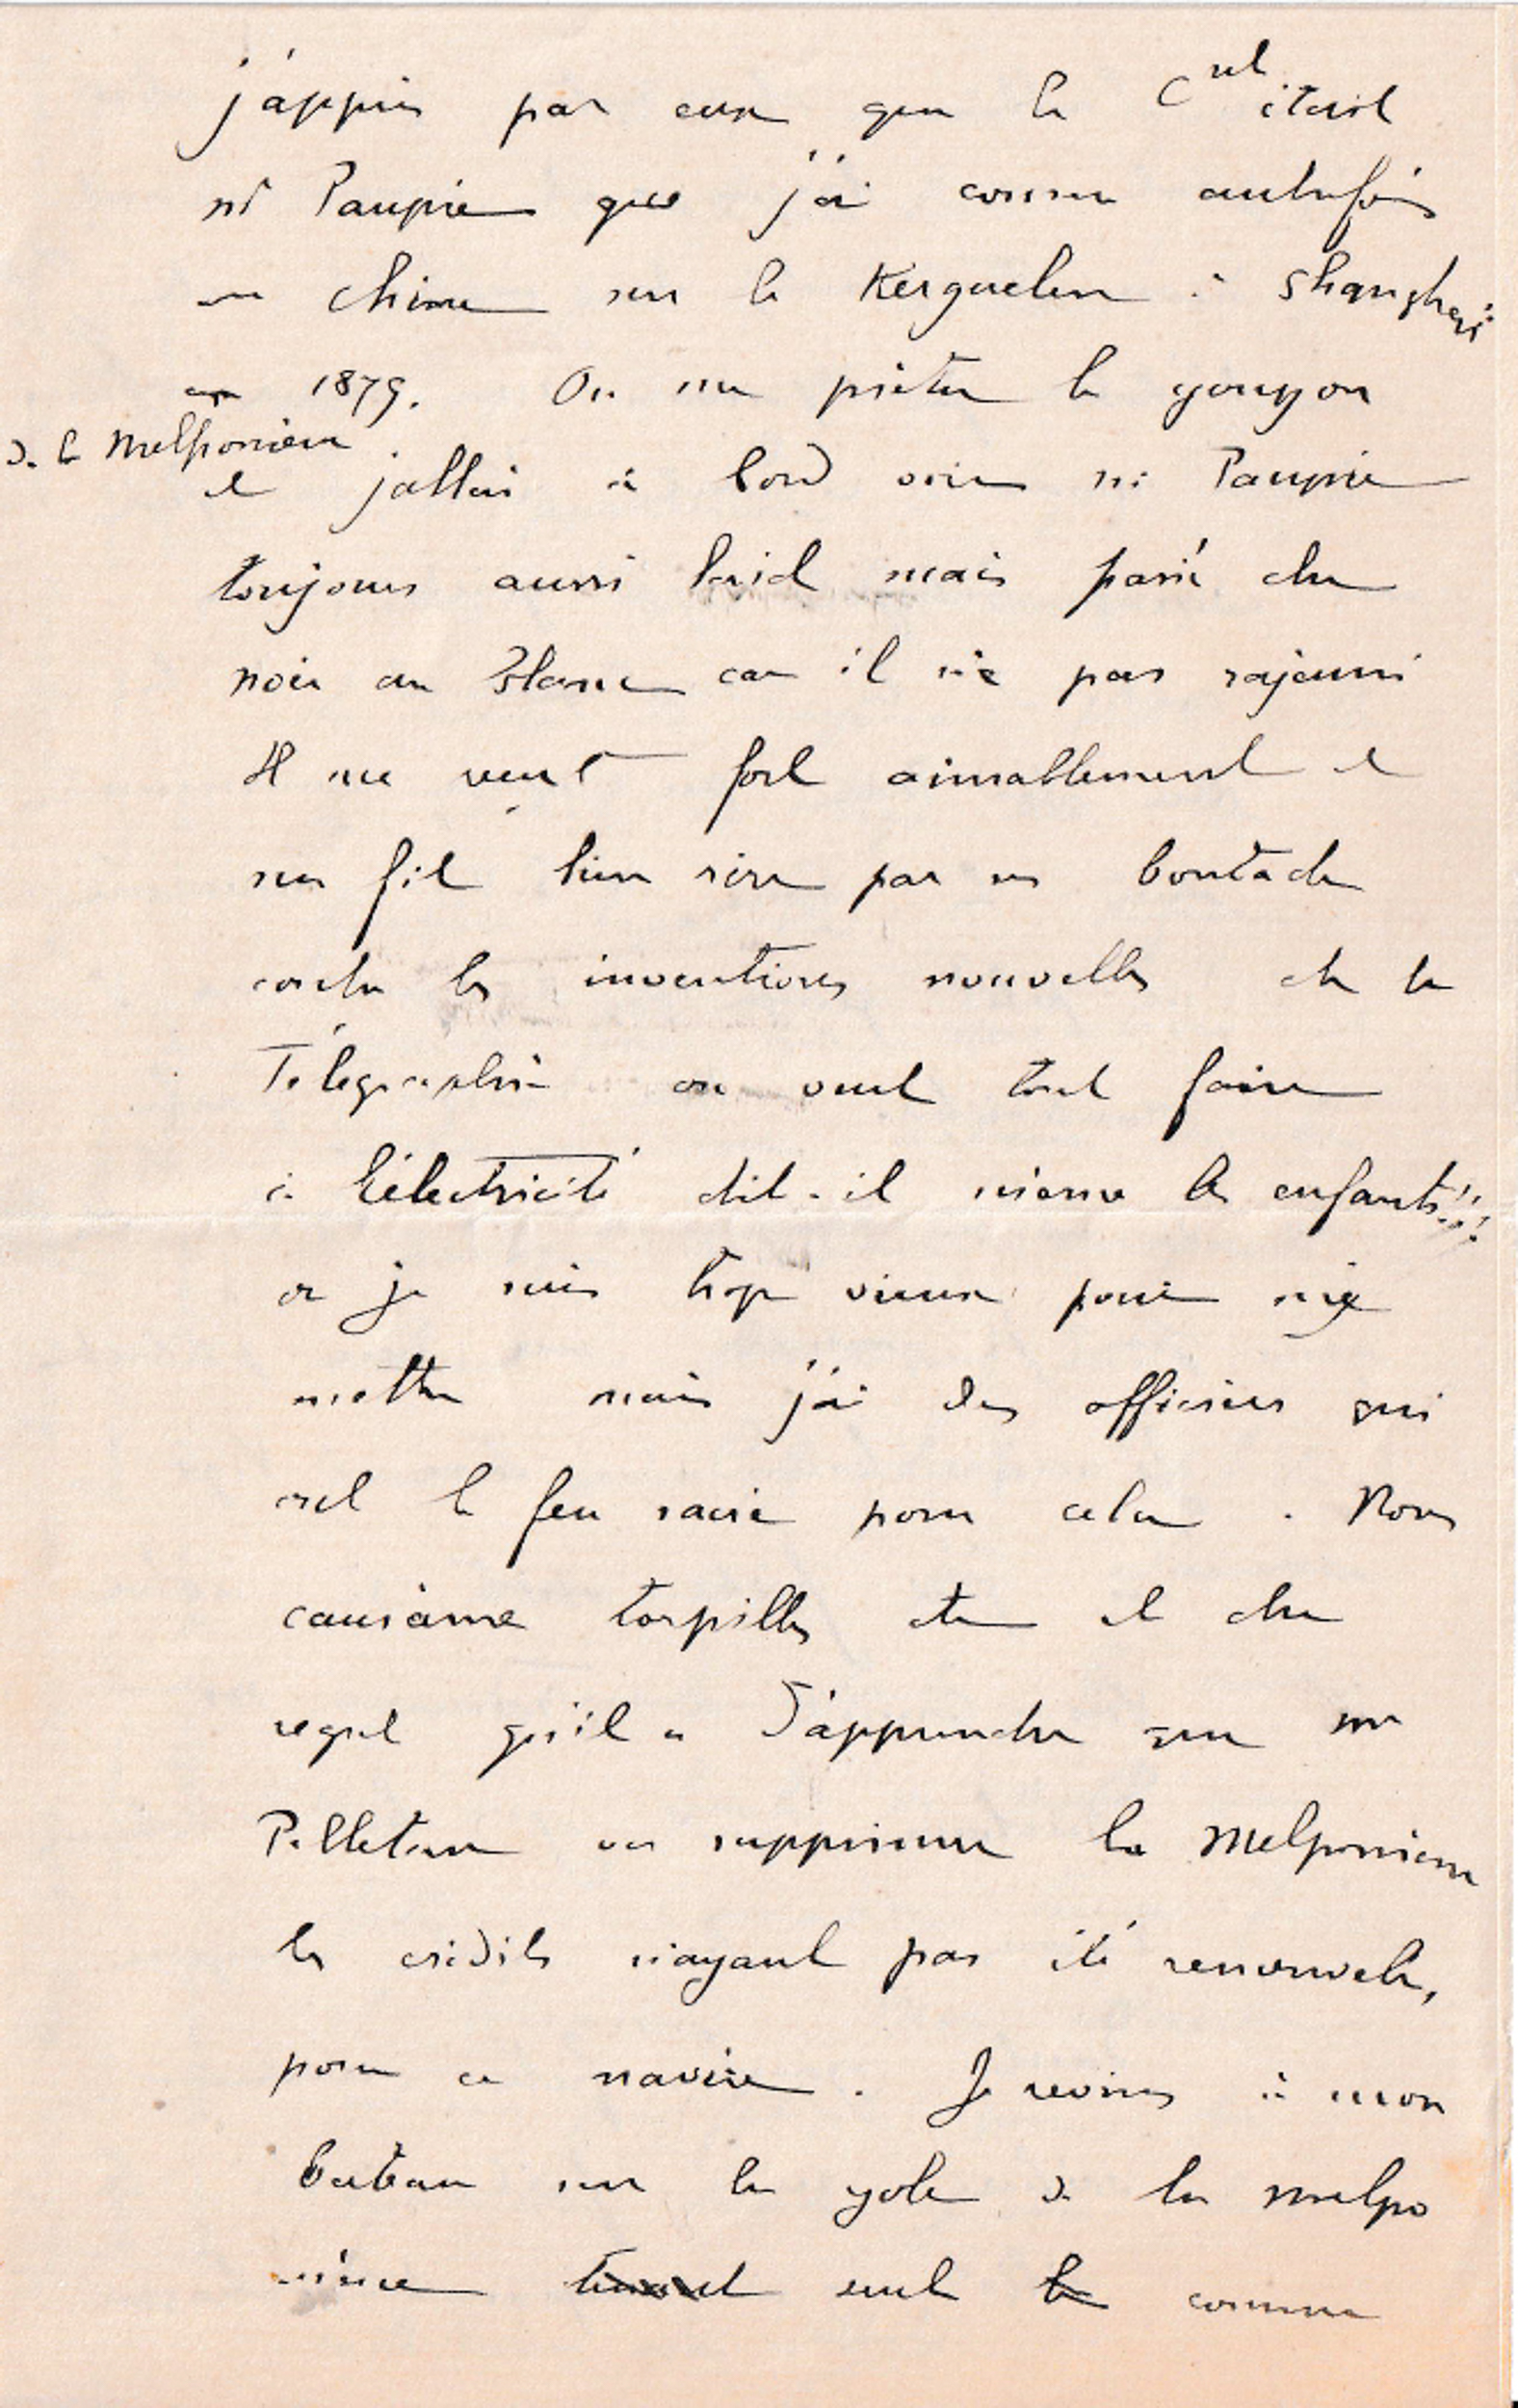 j'appris par eux que le C^nel était
Mr Paupie que j'ai connu autrefois
en Chine sur le Kerguelen à Shanghai
en 1879. On me prêta le youyou
d. la Melpomène
et j'allai à bord voir Mr Paupie
toujours aussi laid mais passé du
noir au Blanc car il n'a pas rajeuni
Il me reçut fort aimablement et
me fit bien rire par ses boutades
contre les inventions nouvelles de la
Télégraphie on veut tout faire
à l'électricité dit-il même les enfants!!!
or je suis trop vieux pour m'y
mettre mais j'ai des officiers qui
ont le feu sacré pour cela. Nous
causâme torpilles etc et du
regret qu'il a d'apprendre que Mr
Pelletan va supprimer la Melpomène
les crédits n'ayant pas été renouvelés,
pour ce navire. Je revins à mon
bateau sur la yole de la Melpo
mène seul comme